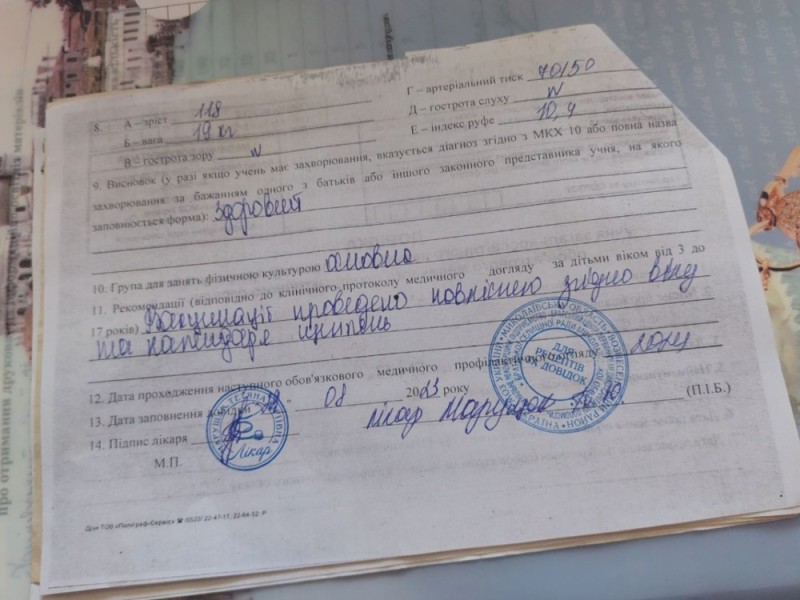 8. А – зріст 118
Б – вага 19 кг
В – гострота зору N
Г – артеріальний тиск 70/50
Д – гострота слуху N
Е – індекс руфе 10,4
9. Висновок (у разі якщо учень має захворювання, вказується діагноз згідно з МКХ 10 або повна назва
захворювання за бажанням одного з батьків або іншого законного представника учня, на якого
заповнюється форма): Здоровий
10. Група для занять фізичною культурою основна
11. Рекомендації (відповідно до клінічного протоколу медичного догляду за дітьми віком від 3 до
17 років) Вакцинації проведено повністю згідно віку
та календаря щеплень
12. Дата проходження наступного обов'язкового медичного профілактичного огляду 2024
13. Дата заповнення довідки " 08 2023 року
14. Підпис лікаря лікар (П.І.Б.)
М.П.
Лікар
ДЛЯ
РЕЦЕПТІВ
ТА ДОВІДОК
Друк ТОВ «Поліграф-Сервіс» ☎ (0522) 22-47-17, 22-64-52
про отримання